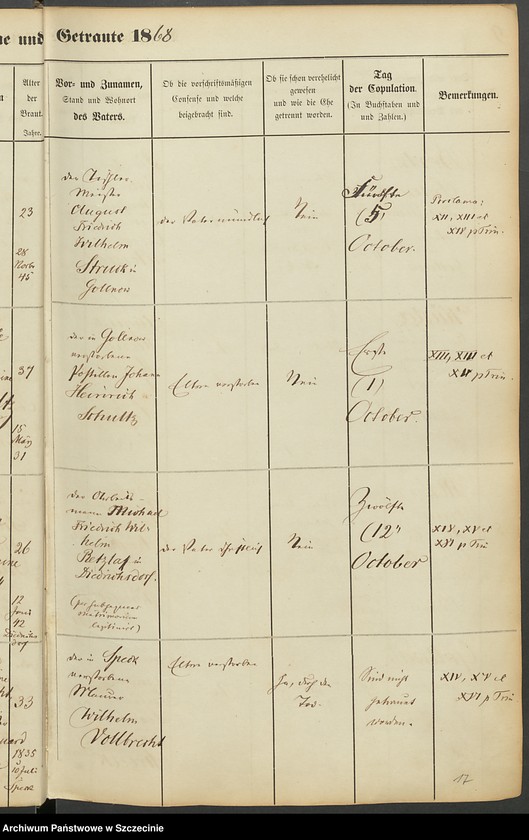 ne und Getraute 1868
Alter
der
Braut.
Jahre.
Vor- und Zunamen,
Stand und Wohnort
des Vaters.
Ob die vorschriftsmäßigen
Consense und welche
beigebracht sind.
Ob sie schon verehelicht
gewesen
und wie die Ehe
getrennt worden.
Tag
der Copulation.
(In Buchstaben und
und Zahlen.)
Bemerkungen.
23
28
Novbr
45
der Tischler
Meister
August
Friedrich
Wilhelm
Struck in
Gollnow
der Vater mündlich
Nein
Fünfte
(5)
October.
Proclam:
XII, XIII et
XIV p Trin.
37
15
März
31
der in Gollnow
verstorbene
Postillon Johann
Heinrich
Schultz
Eltern verstorben
Nein
Erste
(1)
October.
XIII, XIII et
XIV p Trin.
26
12
Juni
42
der
mann Michael
Friedrich Wil-
helm
Retzlaf in
Diedrichsdorf.
(per subsequens
matrimonium
legitimirt)
der Vater schriftlich
Nein
Zwölfte
(12)
October
XIV, XV et
XVI p Trin
33
1835
10 Juli
Speck
der in Speck
verstorbene
Maurer
Wilhelm
Vollbrecht
Eltern verstorben
Ja, durch den
Tod.
Sind nicht
getraut
worden.
XIV, XV et
XVI p Trin
17
Archiwum Państwowe w Szczecinie